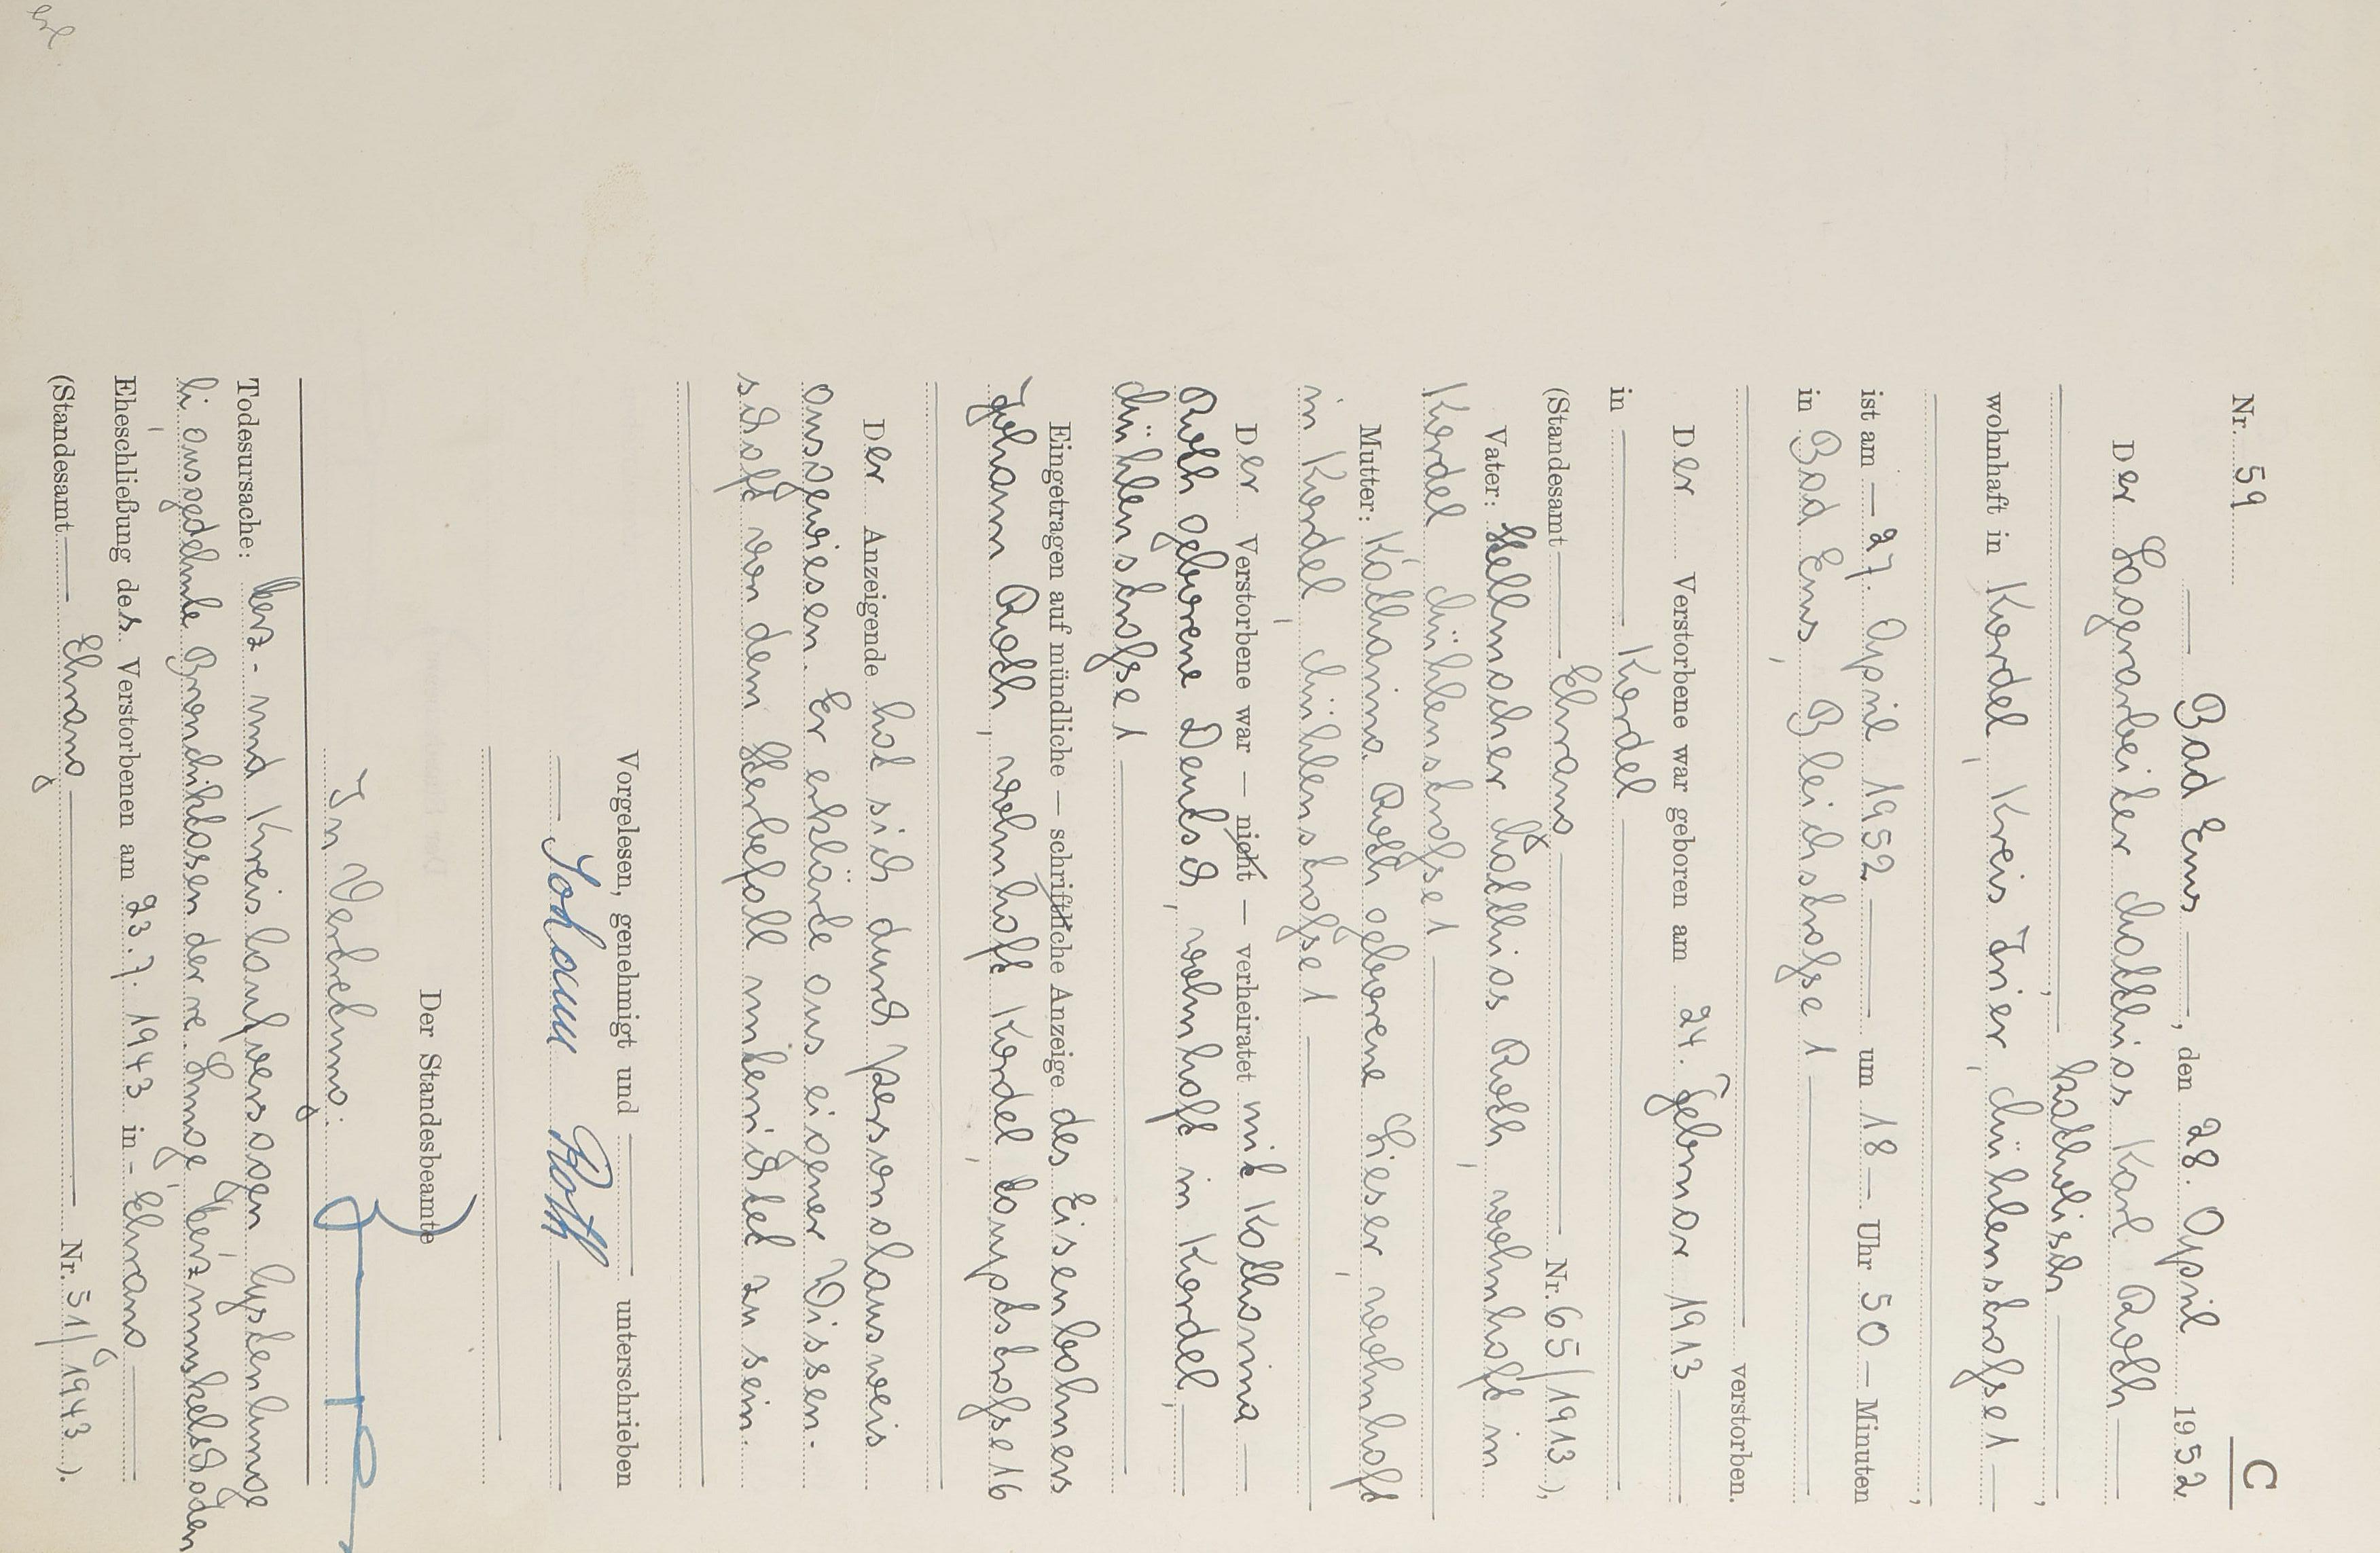 C
Nr. 59
Bad Ems, den 28. April 1952
Der Lagerarbeiter Matthias Karl Roth
katholisch,
wohnhaft in Kordel, Kreis Trier, Mühlenstraße 1
,
ist am 27. April 1952 um 18 Uhr 50 Minuten
in Bad Ems, Bleichstraße 1
verstorben.
Der Verstorbene war geboren am 24. Februar 1913
in Kordel
(Standesamt Ehrang Nr. 65/1913),
Vater: Stellmacher Matthias Roth, wohnhaft in
Kordel Mühlenstraße 1
Mutter: Katharina Roth geborene Lieser, wohnhaft
in Kordel, Mühlenstraße 1
Der Verstorbene war — nicht — verheiratet mit Katharina
Roth geborene Deutsch, wohnhaft in Kordel,
Mühlenstraße 1
Eingetragen auf mündliche — schriftliche Anzeige des Eisenbahners
Johann Roth, wohnhaft Kordel, Hauptstraße 16
Der Anzeigende hat sich durch Personalausweis
ausgewiesen. Er erklärte aus eigener Wissen-
schaft von dem Sterbefall unterrichtet zu sein.
Vorgelesen, genehmigt und unterschrieben
Johann Roth
Der Standesbeamte
In Vertretung:
Todesursache: Herz- und Kreislaufversagen Zystenlunge
bei ausgedehnte Bronchiktasen der re. Lunge, Herzmuskelschaden
Eheschließung des Verstorbenen am 23.7.1943 in Ehrang
(Standesamt Ehrang Nr. 51/1943).